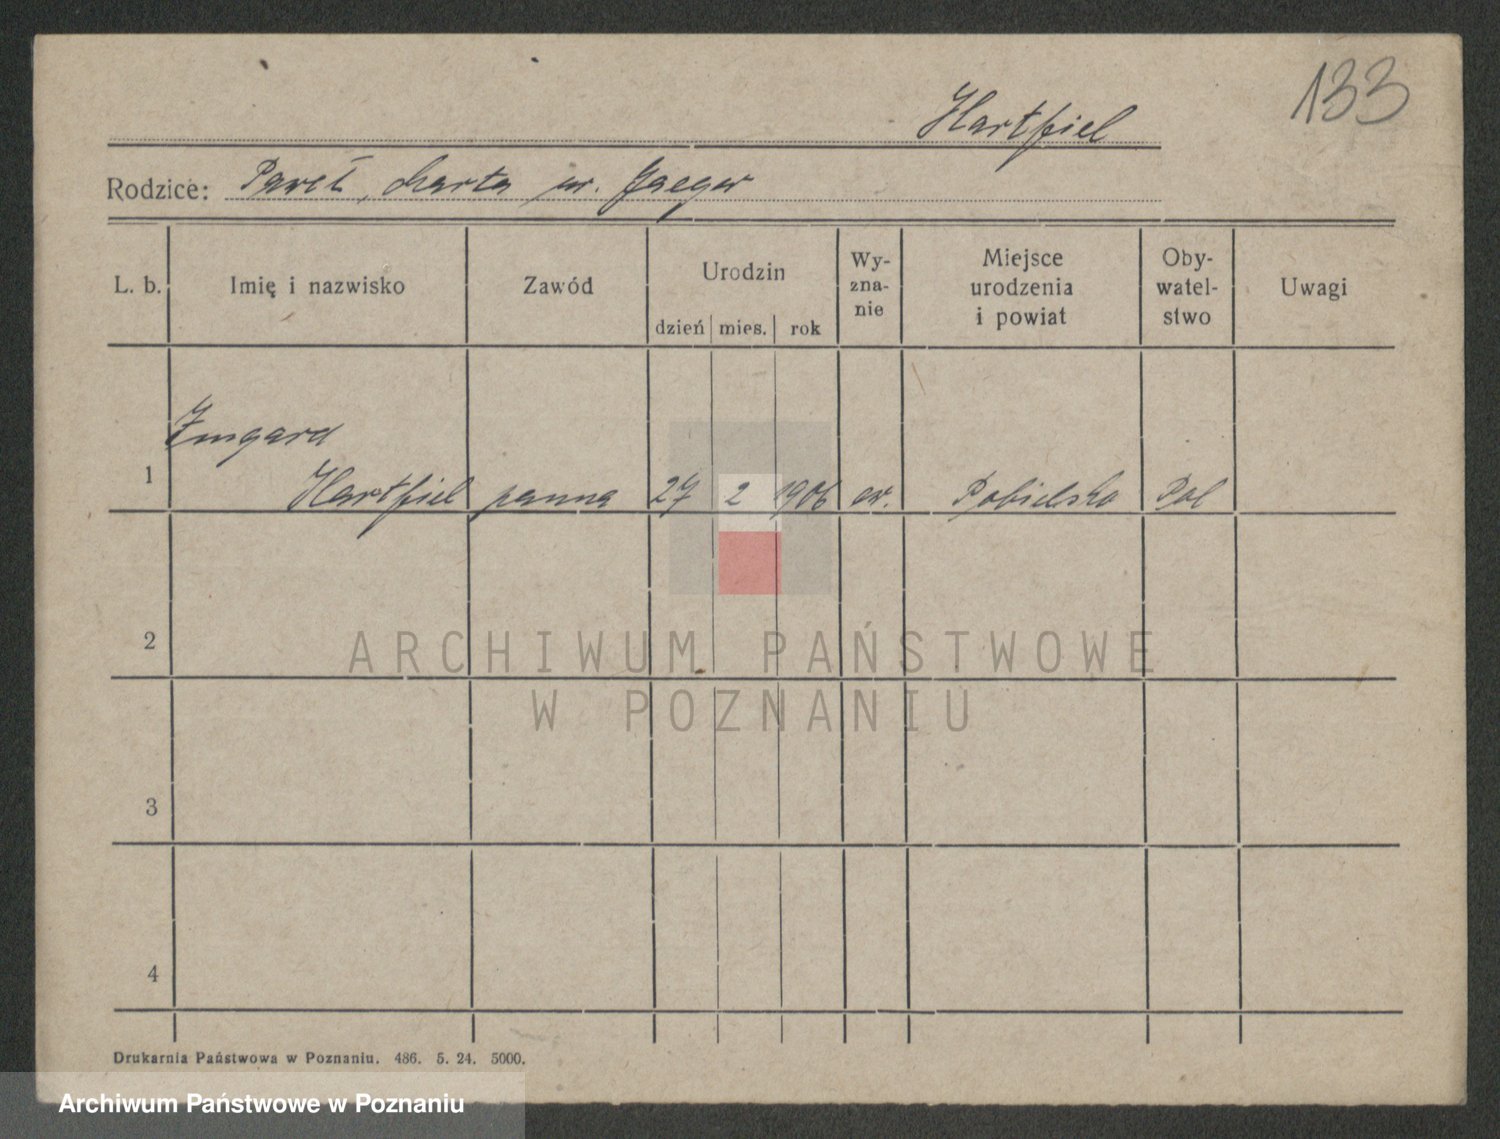 133
Hartfiel
Rodzice: Paweł, Marta ur. Jaeger
L. b.
Imię i nazwisko
Zawód
Urodzin
dzień mies. rok
Wy-
zna-
nie
Miejsce
urodzenia
i powiat
Oby-
watel-
stwo
Uwagi
Irmgard
1 Hartfiel panna 27 2 1906 ew. Pobielsko Pol
2
ARCHIWUM PAŃSTWOWE
W POZNANIU
3
4
Drukarnia Państwowa w Poznaniu. 486. 5. 24. 5000.
Archiwum Państwowe w Poznaniu